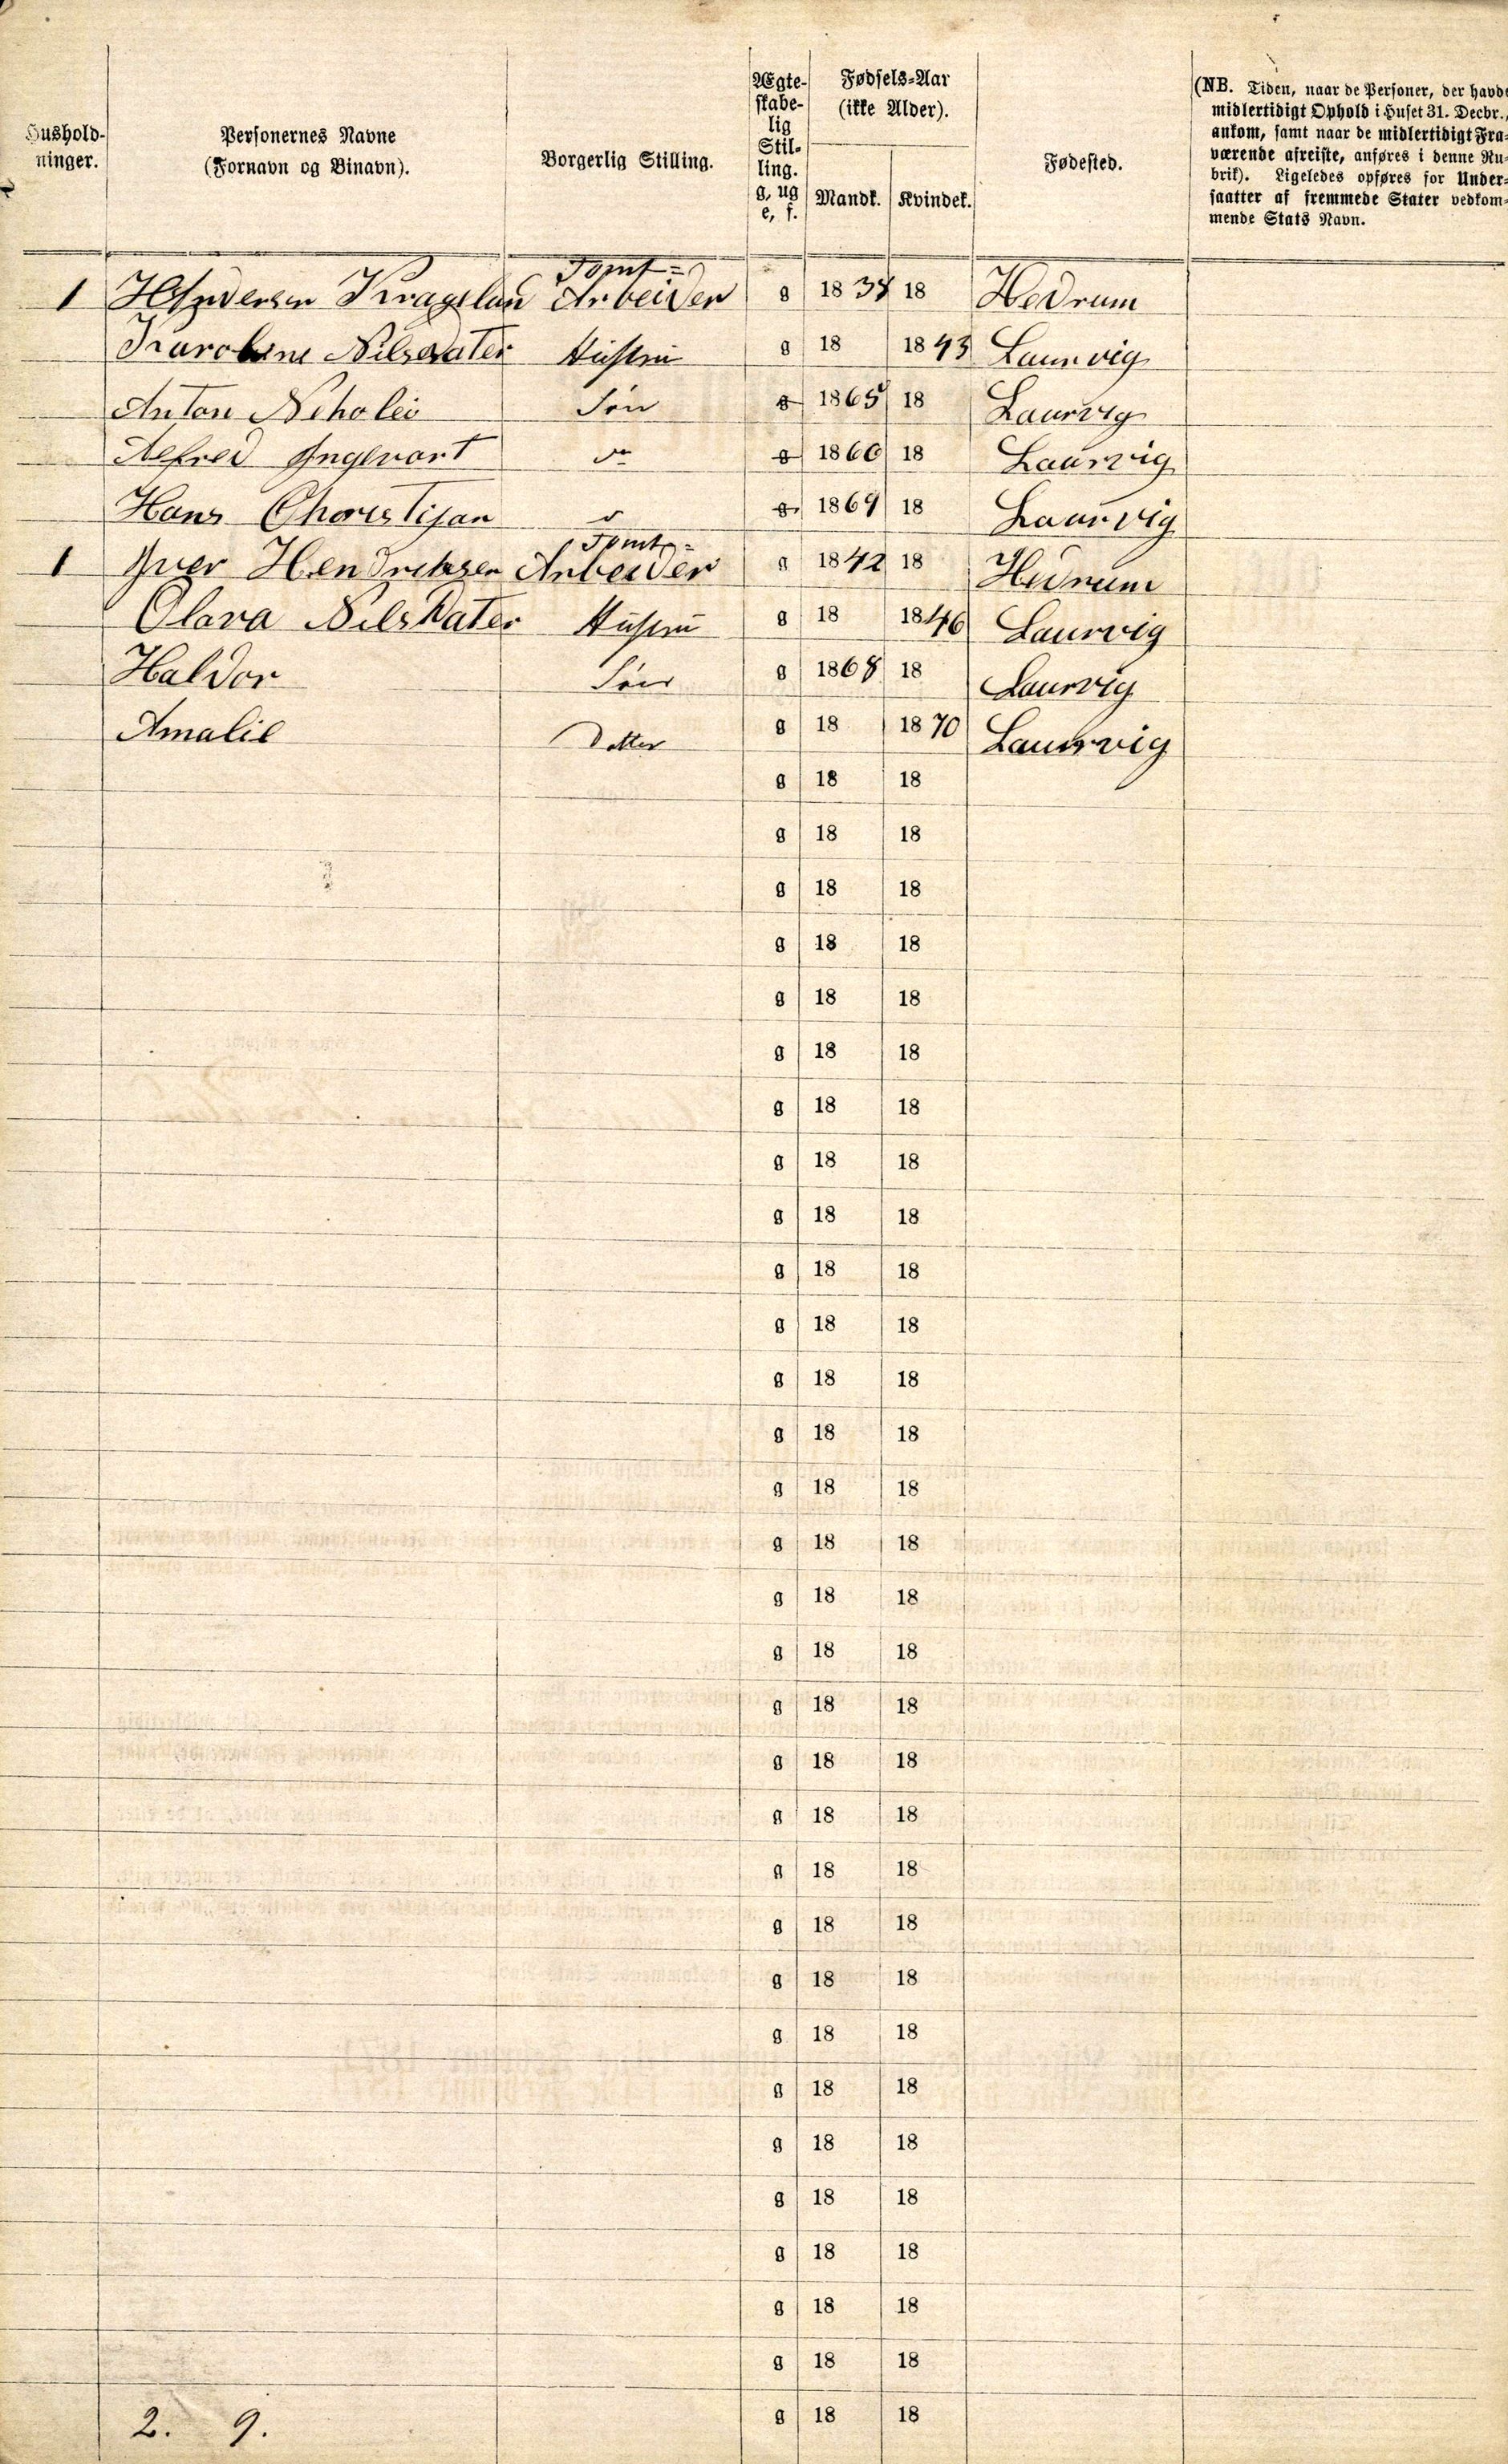 Hushold-
ninger.
Personernes Navne
(Fornavn og Binavn).
Borgerlig Stilling.
Ægte-
skabe-
lig
Stil-
ling.
g, ug
e, f.
Fødsels-Aar
(ikke Alder).
Mandk.
Kvindek.
Fødested.
(NB. Tiden, naar de Personer, der havde
midlertidigt Ophold i Huset 31. Decbr.,
ankom, samt naar de midlertidigt Fra-
værende afreiste, anføres i denne Ru-
brik). Ligeledes opføres for Under-
saatter af fremmede Stater vedkom-
mende Stats Navn.
Tomt=
1 Kragelun Arbeider g 18 18 Hedrum
Karoline Nilsdater Hustru g 18 1843 Laurvig
Anton Nikolei Søn g 1865 18 Laurvig
Alfred Ingevart g 1866 18 Laurvig
Hans Choristijan g 1869 18 Laurvig
Tomt=
1 Iver Hendriksen Arbeider g 1842 18 Hedrum
Olava Nilsdater Hustru g 18 1846 Laurvig
Haldor Søn g 1868 18 Laurvig
Amalie Datter g 18 1870 Laurvig
g 18 18
g 18 18
g 18 18
g 18 18
g 18 18
g 18 18
g 18 18
g 18 18
g 18 18
g 18 18
g 18 18
g 18 18
g 18 18
g 18 18
g 18 18
g 18 18
g 18 18
g 18 18
g 18 18
g 18 18
g 18 18
g 18 18
g 18 18
g 18 18
g 18 18
g 18 18
g 18 18
g 18 18
g 18 18
g 18 18
2. 9. g 18 18